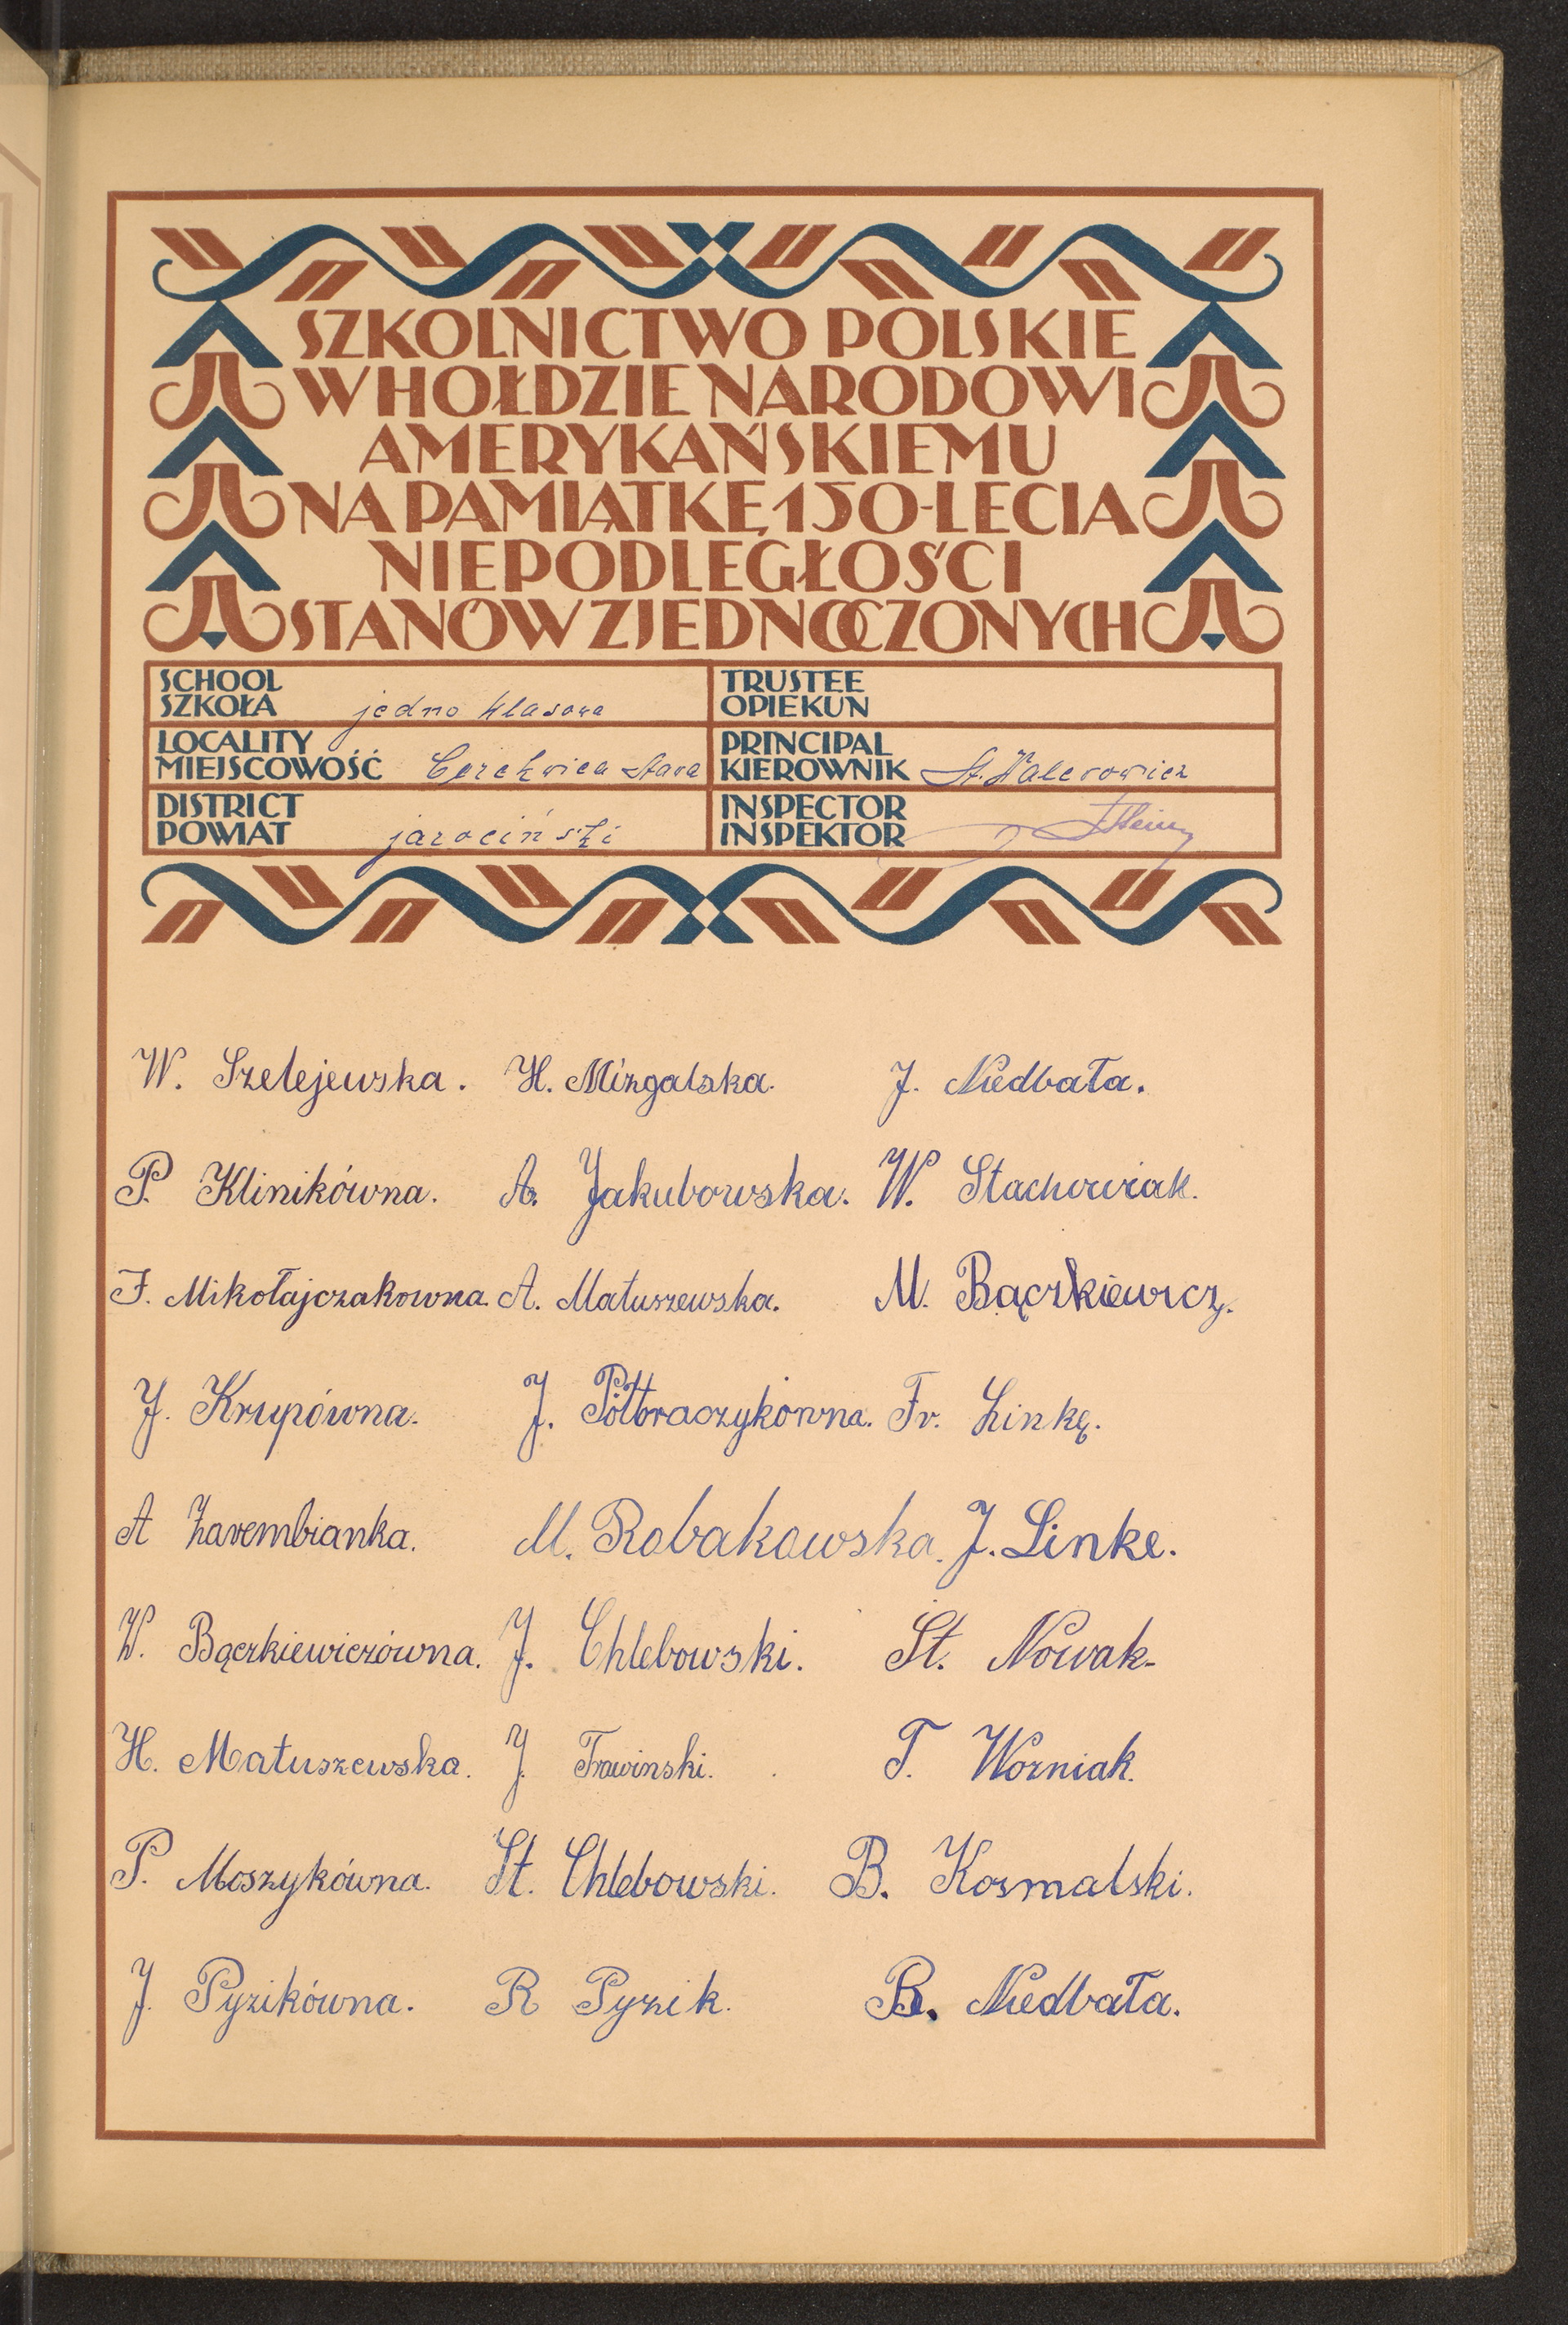 SZKOLNICTWO POLSKIE
W HOŁDZIE NARODOWI
AMERYKAŃSKIEMU
NA PAMIĄTKĘ 150-LECIA
NIEPODLEGŁOŚCI
STANÓW ZJEDNOCZONYCH
SCHOOL
SZKOŁA jedno klasowa
TRUSTEE
OPIEKUN
LOCALITY
MIEJSCOWOŚĆ Cerekwica Stara
PRINCIPAL
KIEROWNIK St. Walerowicz
DISTRICT
POWIAT jarociński
INSPECTOR
INSPEKTOR
W. Szelejewska. H. Mizgalska. J. Niedbała.
P. Klinikówna. A. Jakubowska. W. Stachowiak.
F. Mikołajczakowna. A. Matuszewska. M. Bączkiewicz.
J. Krupówna. J. Półtoraczykówna. Fr. Linkę.
A Zarembianka. M. Robakowska. J. Linke.
W. Bączkiewiczówna. J. Chlebowski. St. Nowak-
H. Matuszewska. J. Trawinski. T. Wozniak.
P. Moszykówna. St. Chlebowski. B. Kosmalski.
J. Pyzikówna. R Pyzik. B. Niedbała.